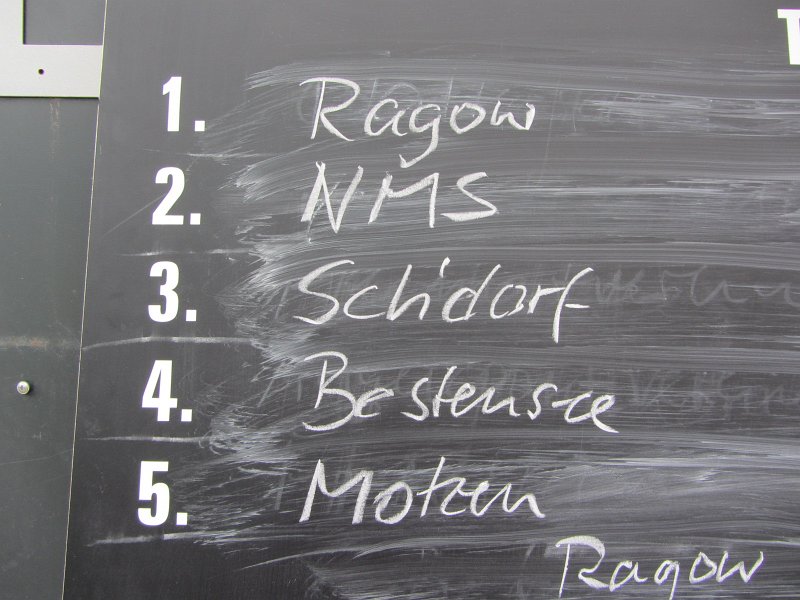 T
1. Ragow
2. NMS
3. Sch'dorf
4. Bestensee
5. Motzen
Ragow